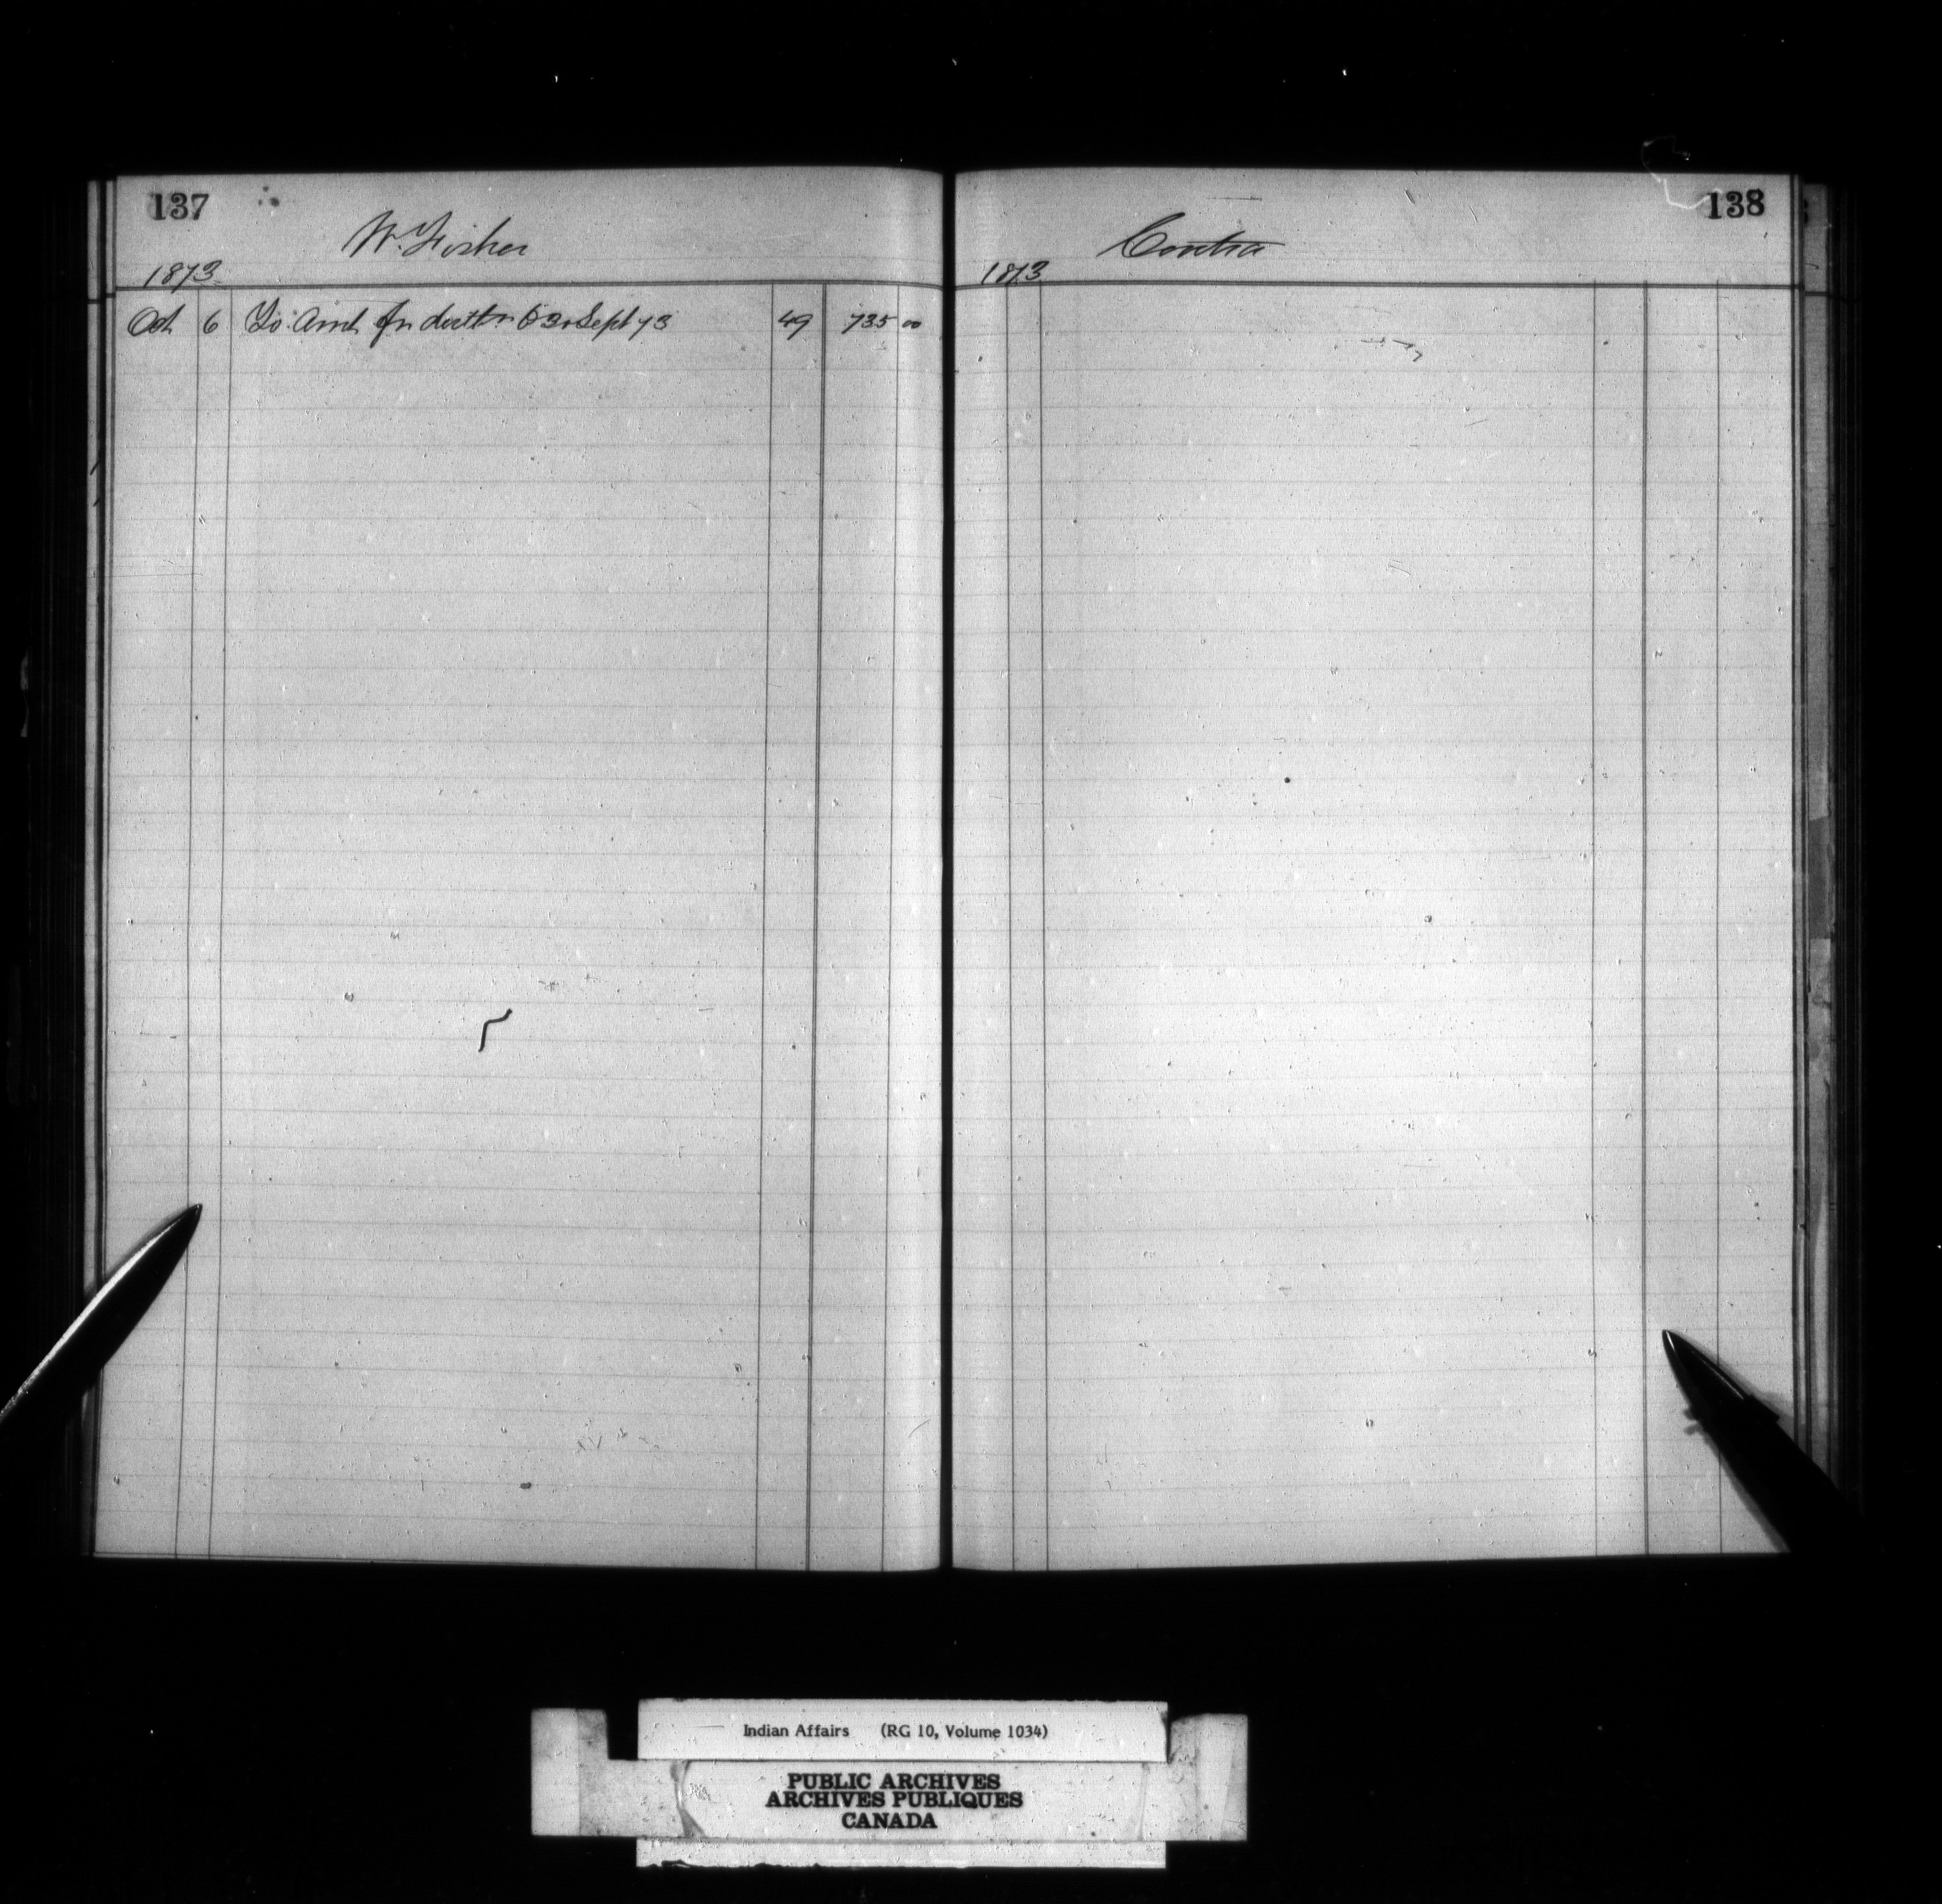 137
W. Fisher
1873
Oct 6 To Amt for to 30 Sept 73 49 735 00
138
Contra
1873
Indian Affairs (RG 10, Volume 1034)
PUBLIC ARCHIVES
ARCHIVES PUBLIQUES
CANADA